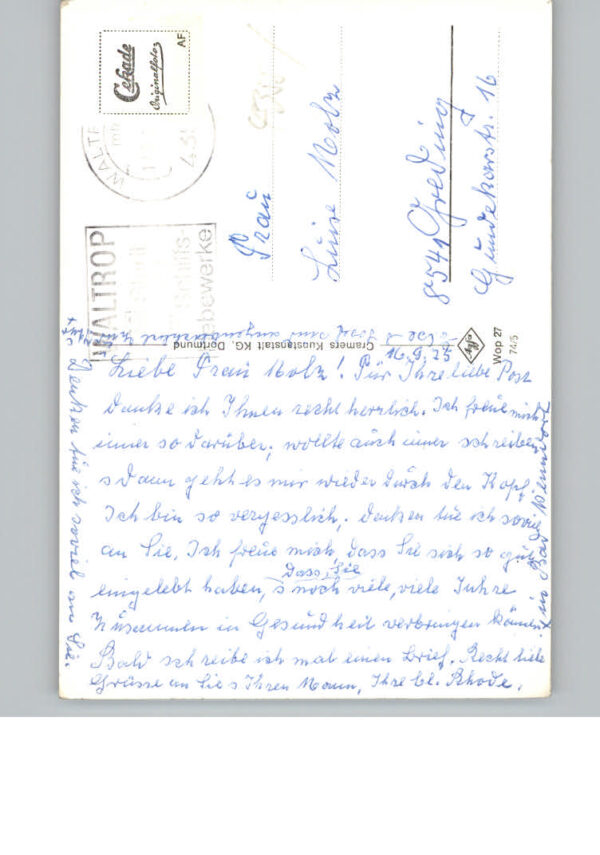 Cekade
Originalfoto
AF
WALTR
WALTROP
Schiffs-
hebewerke
Frau
Luise Nolz
8541 Greding
Gundekarstr. 16
Cramers Kunstanstalt KG, Dortmund
Wop 27
74/5
16.9.75
Liebe Frau Nolz! Für Ihre liebe Post
danke ich Ihnen recht herzlich. Ich freue mich
imer so darüber, wollte auch imer schreiben
s dann geht es mir wieder durch den Kopf,
Ich bin so vergesslich, denken tue ich soviel
an Sie, Ich freue mich, dass Sie sich so gut
eingelebt haben, s noch viele, viele Jahre
dass Sie
zusammen in Gesundheit verbringen können.
Bald schreibe ich mal einen Brief. Recht liebe
Grüsse an Sie s Ihren Mann, Ihre bl. Rhode.
Denken tue ich soviel an Sie.
in Bad